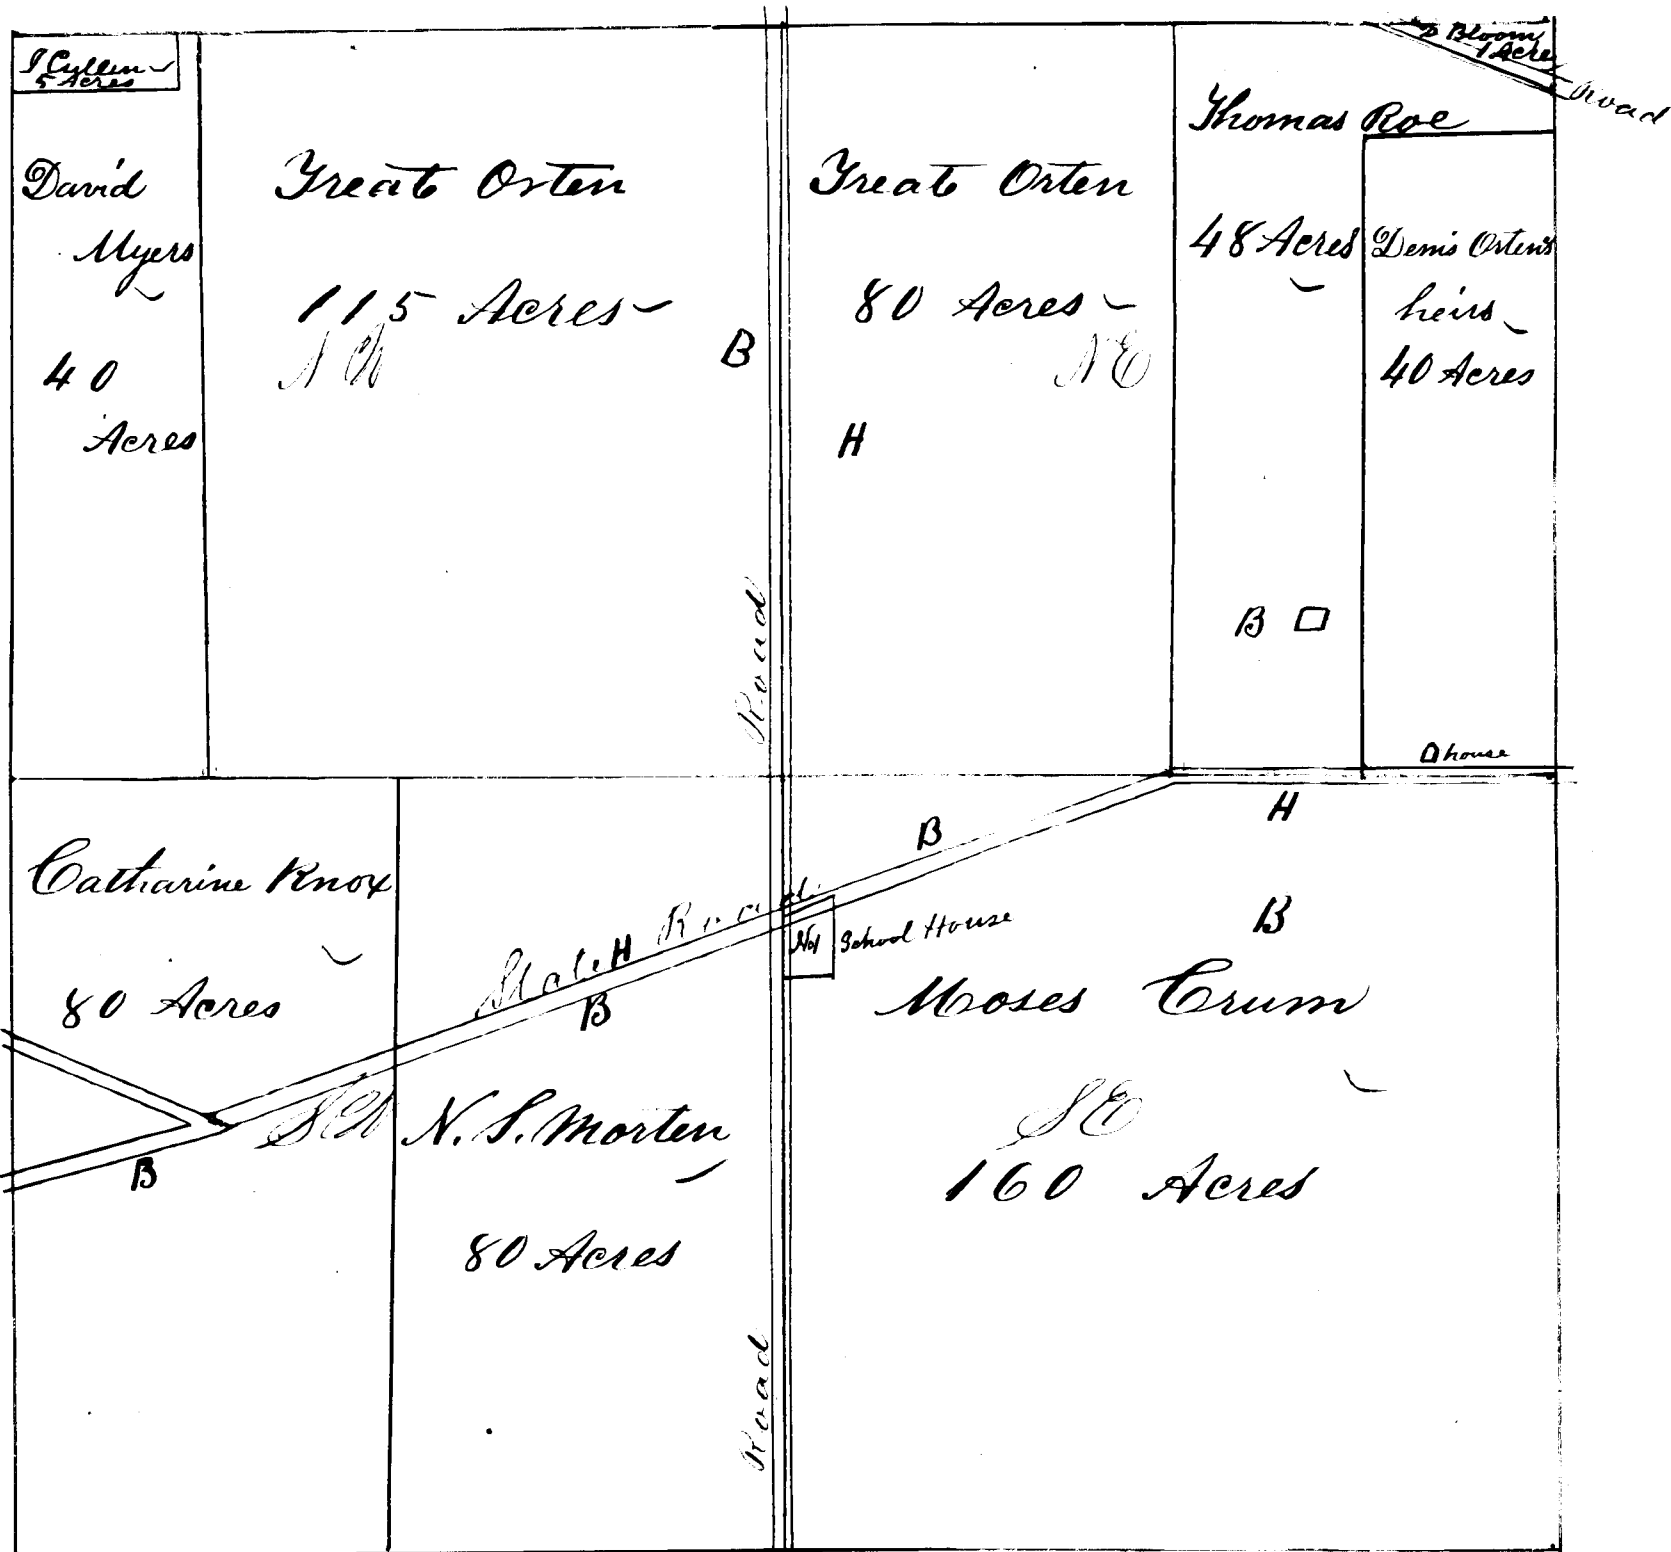 J Cullen
5 Acres
David
Myers
40
Acres
Treat Orten
115 Acres
NW
B
Treat Orten
80 Acres
NE
H
D Bloom
1 Acre
Road
Thomas Roe
48 Acres
B
Denis Orten's
heirs
40 Acres
house
Road
Catharine Knox
80 Acres
B
SW
State Road
H
B
N. S. Morten
80 Acres
Road
B
No 1
School House
H
B
Moses Crum
SE
160 Acres